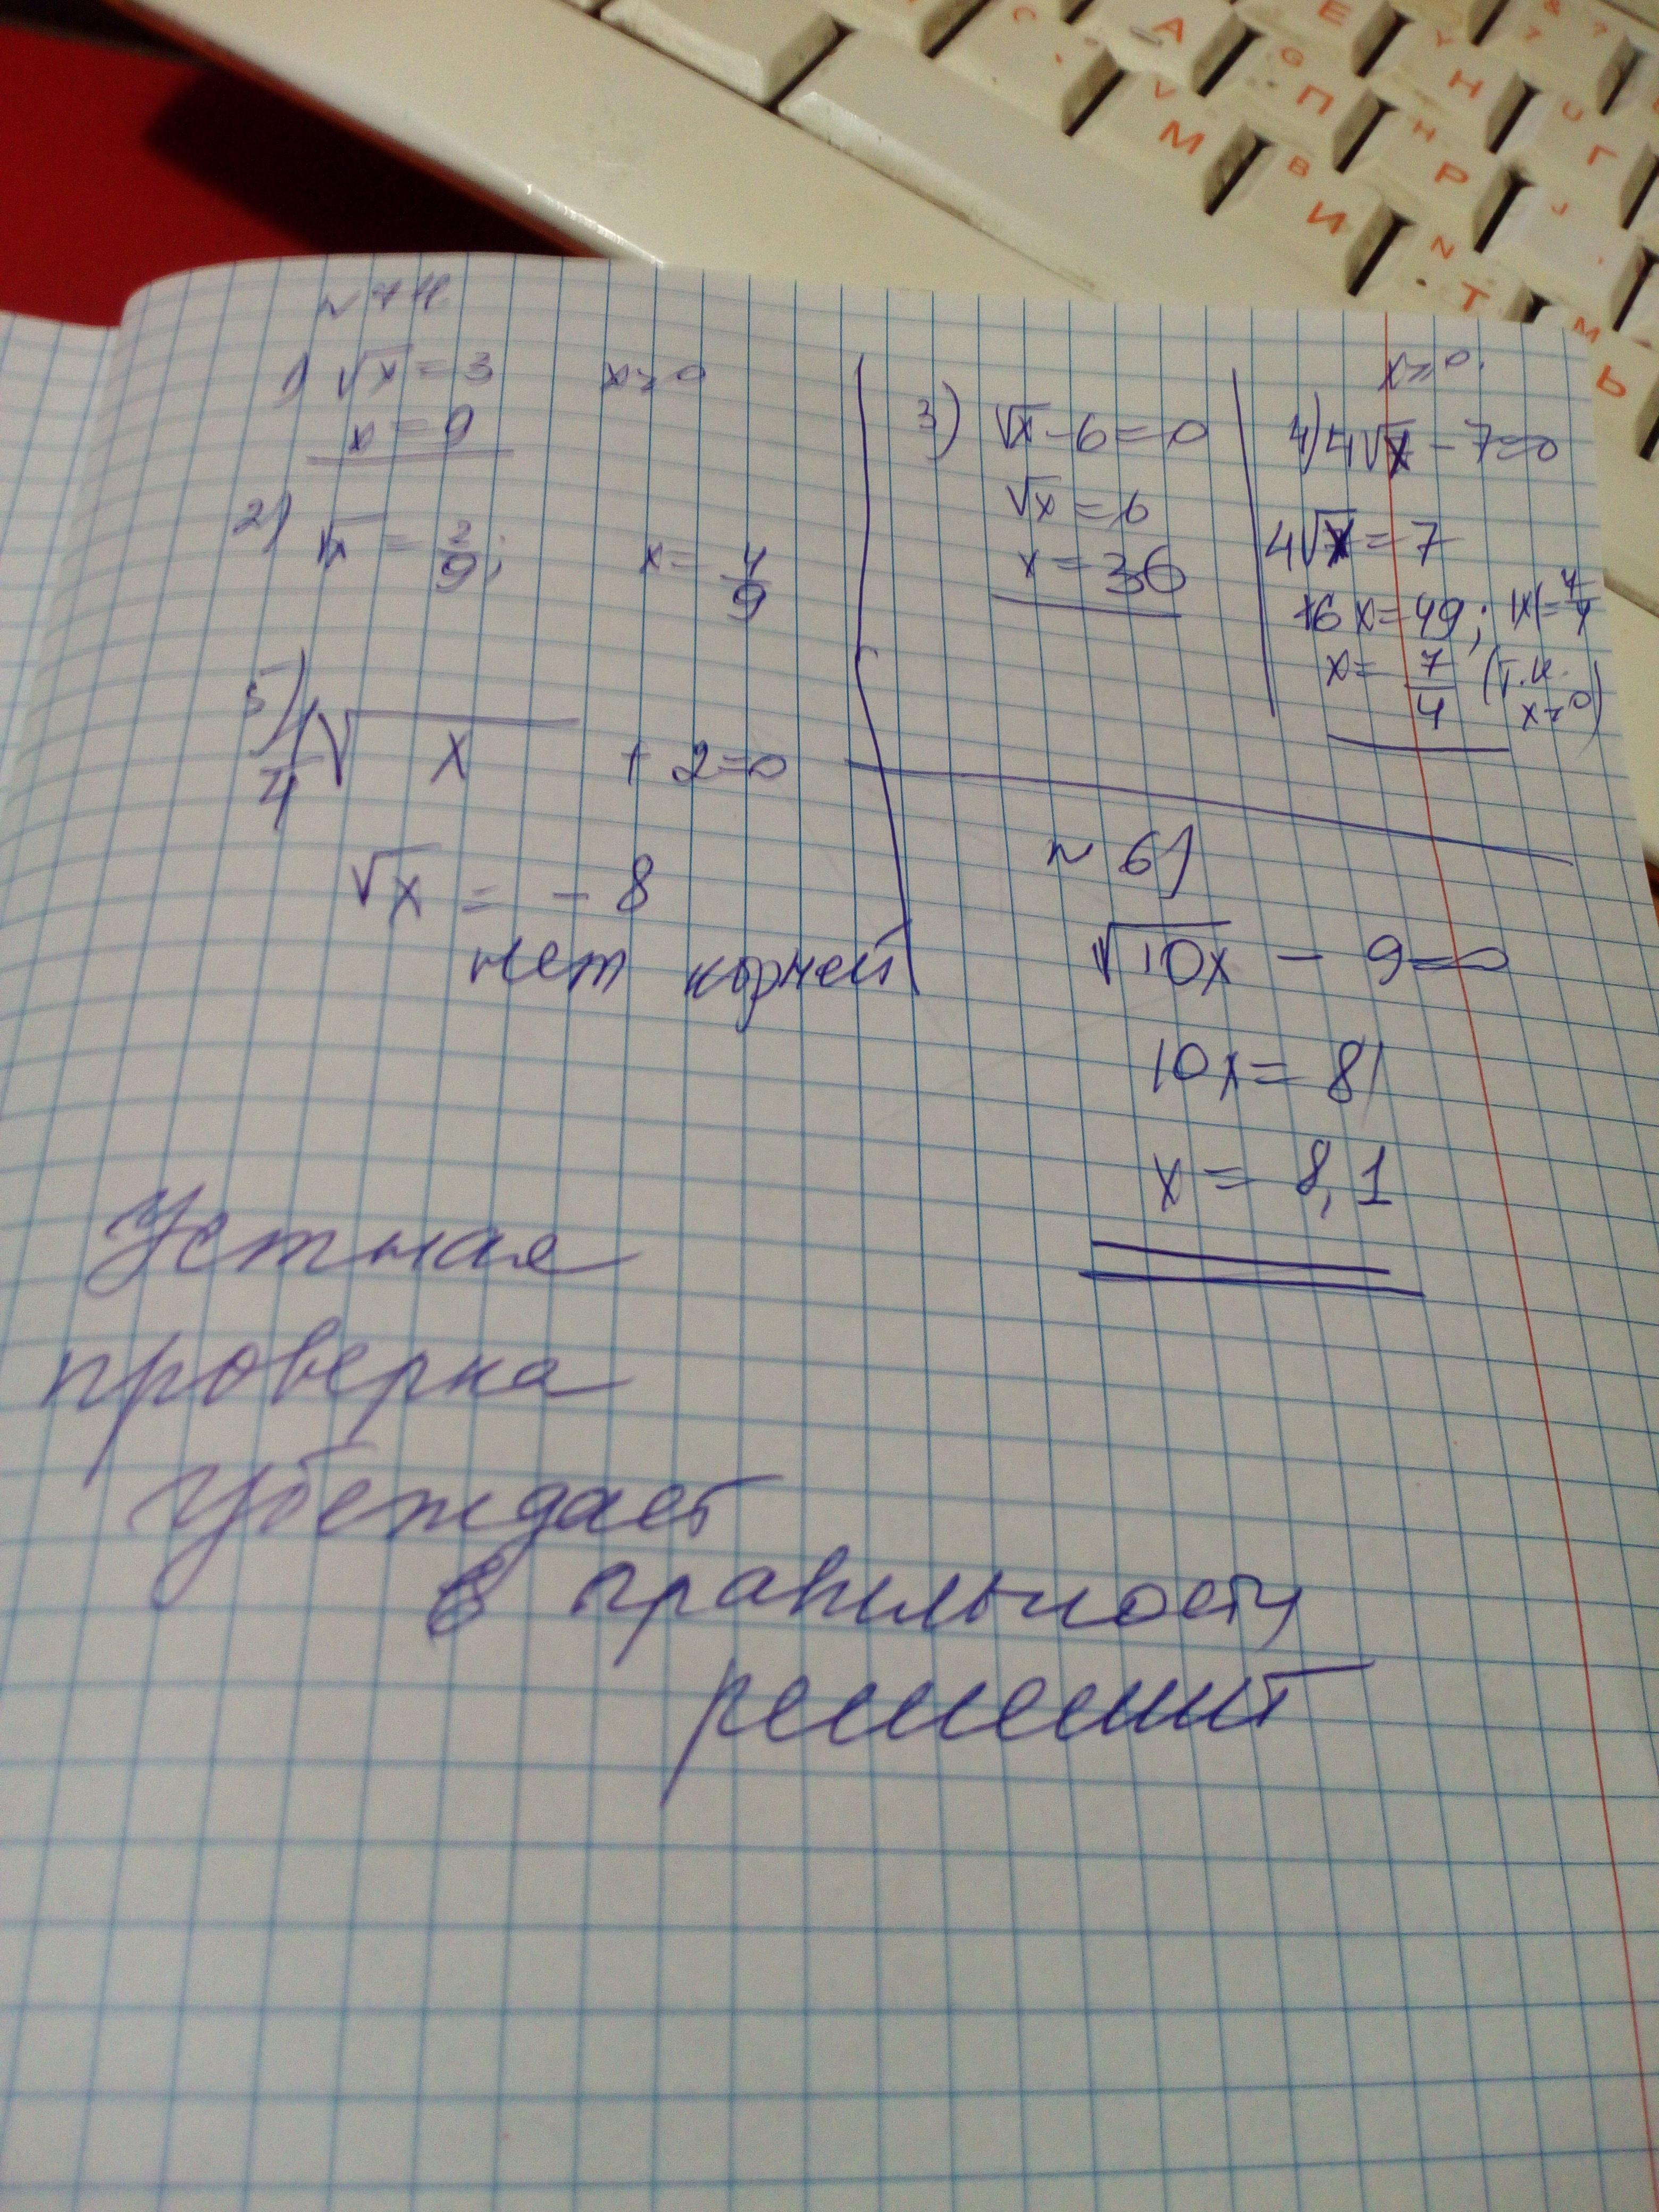 1) √x = 3 x ≥ 0
x = 9
2) √x = 2/9; x = 4/9
3) √x - 6 = 0
√x = 6
x = 36
x ≥ 0.
4) 4√x - 7 = 0
4√x = 7
16x = 49; |x| = 7/4
x = 7/4 (т.к.
x ≥ 0)
5) 1/4 √x + 2 = 0
√x = - 8
нет корней
№ 6)
√10x - 9 = 0
10x = 81
x = 8,1
Устная
проверка
убеждает
в правильности
А
Е
М
П
Н
В
И
Р
Г
Т
Ь